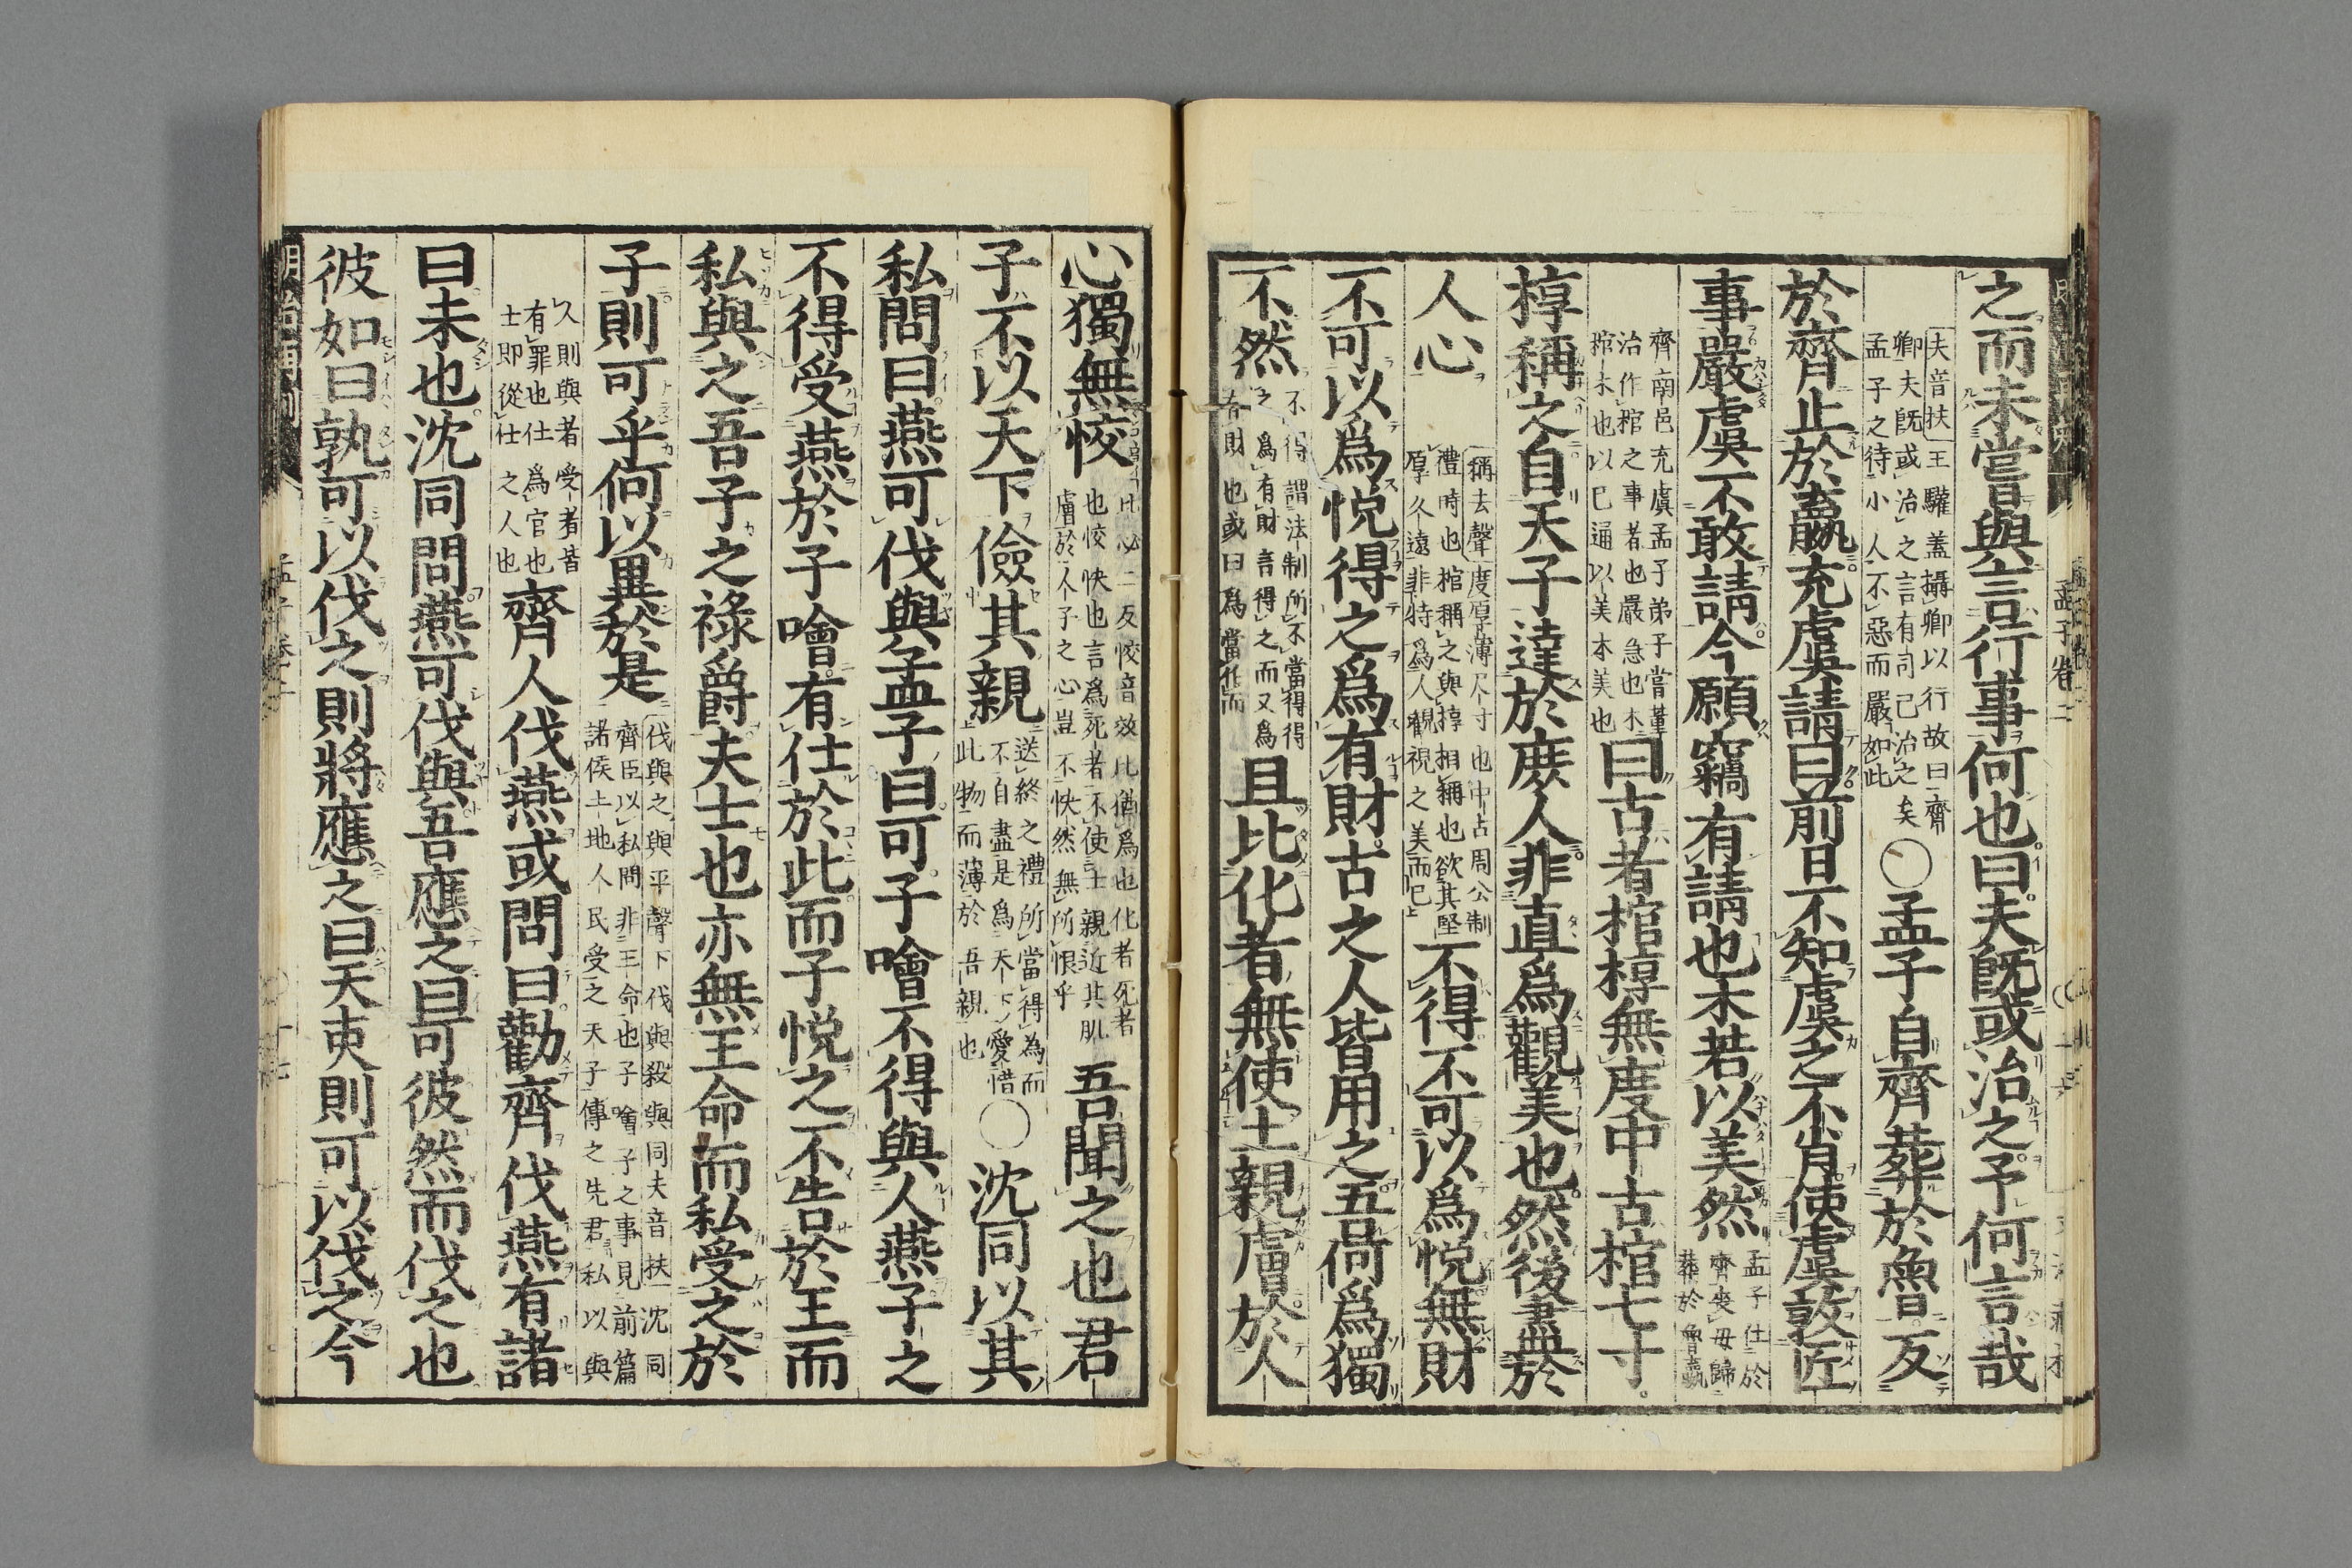 之而未嘗與言行事何也曰夫既或治之予何言哉
夫音扶王驩蓋攝卿以行故曰齊
卿夫既或治之言有司已治之矣
孟子之待小人不惡而嚴如此
○孟子自齊葬於魯反
於齊止於嬴充虞請曰前日不知虞之不肖使虞敦匠
事嚴虞不敢請今願竊有請也木若以美然
孟子仕於
齊喪母歸
葬於魯嬴
齊南邑充虞孟子弟子嘗董
治作棺之事者也嚴急也木
棺木也以已通以美太美也
曰古者棺椁無度中古棺七寸
椁稱之自天子達於庶人非直爲觀美也然後盡於
人心
稱去聲度厚薄尺寸也中古周公制
禮時也棺稱之與椁相稱也欲其堅
厚久遠非特爲人觀視之美而已
不得不可以爲悦無財
不可以爲悦得之爲有財古之人皆用之吾何爲獨
不然
不得謂法制所不當得得
之爲有財言得之而又爲
有財也或曰爲當作而
且比化者無使土親膚於人
孟子卷二
心獨無恔
比必二反恔音效比猶爲也化者死者
也恔快也言爲死者不使土親近其肌
膚於人子之心豈不快然無所恨乎
吾聞之也君
子不以天下儉其親
送終之禮所當得為而
不自盡是爲天下愛惜
此物而薄於吾親也
○沈同以其
私問曰燕可伐與孟子曰可子噲不得與人燕子之
不得受燕於子噲有仕於此而子悦之不告於王而
私與之吾子之祿爵夫士也亦無王命而私受之於
子則可乎何以異於是
伐與之與平聲下伐與殺與同夫音扶沈同
齊臣以私問非王命也子噲子之事見前篇
諸侯土地人民受之天子傳之先君私以與
人則與者受者皆
有罪也仕爲官也
士即從仕之人也
齊人伐燕或問曰勸齊伐燕有諸
曰未也沈同問燕可伐與吾應之曰可彼然而伐之也
彼如曰孰可以伐之則將應之曰天吏則可以伐之今